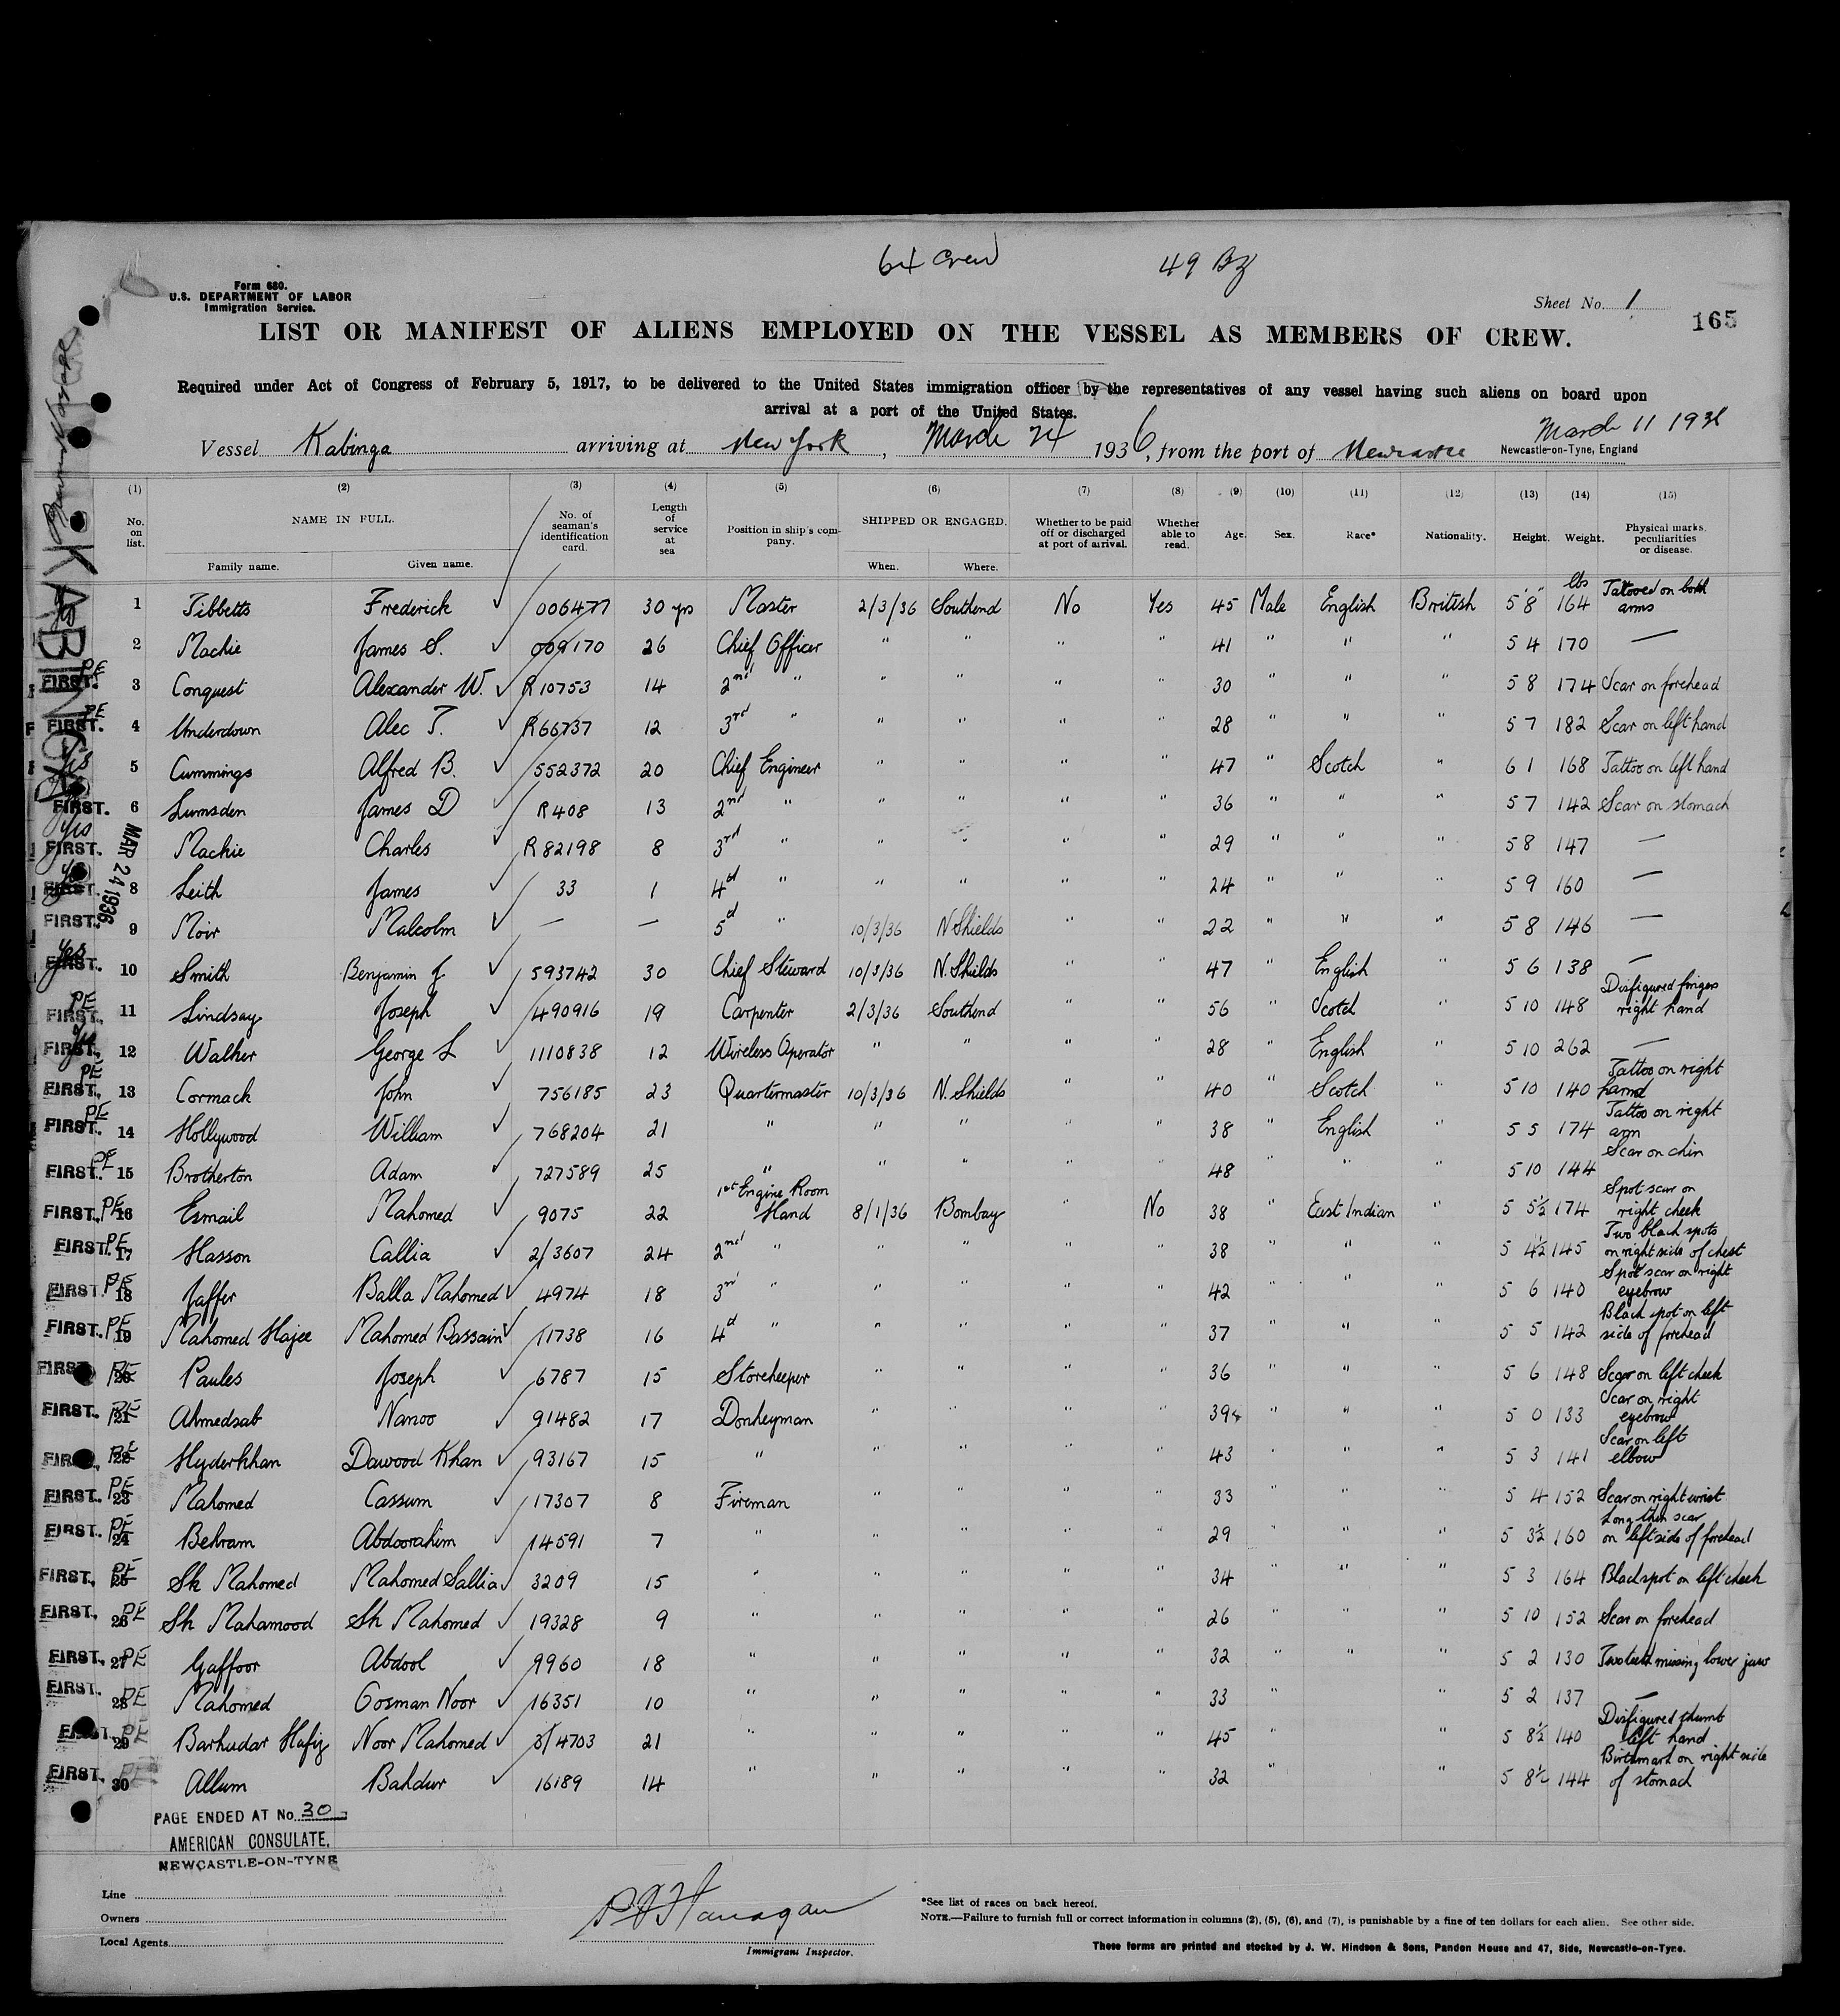 64 Crew 49 Bz
Form 680.
U.S. DEPARTMENT OF LABOR
Immigration Service.
Sheet No. 1
165
LIST OR MANIFEST OF ALIENS EMPLOYED ON THE VESSEL AS MEMBERS OF CREW.
Required under Act of Congress of February 5, 1917, to be delivered to the United States immigration officer by the representatives of any vessel having such aliens on board upon
arrival at a port of the United States.
March 11 1936
Vessel Kabinga arriving at New York, March 24 1936, from the port of Newcastle Newcastle-on-Tyne, England
(1) (2) (3) (4) (5) (6) (7) (8) (9) (10) (11) (12) (13) (14) (15)
No. on list. NAME IN FULL. Family name. Given name. No. of seaman's identification card. Length of service at sea Position in ship's company. SHIPPED OR ENGAGED. When. Where. Whether to be paid off or discharged at port of arrival. Whether able to read. Age. Sex. Race* Nationality. Height. Weight. Physical marks, peculiarities or disease.
KABINGA
MAR 24 1936
1 Tibbetts Frederick 006477 30 yrs Master 2/3/36 Southend No Yes 45 Male English British 5' 8" 164 lbs Tatooed on both arms
2 Mackie James S. 009170 26 Chief Officer " " " " 41 " " " 5 4 170 —
FIRST. PE 3 Conquest Alexander W. R10753 14 2nd " " " " " 30 " " " 5 8 174 Scar on forehead
FIRST. PE 4 Underdown Alec T. R66737 12 3rd " " " " " 28 " " " 5 7 182 Scar on left hand
yes 5 Cummings Alfred B. 552372 20 Chief Engineer " " " " 47 " Scotch " 6 1 168 Tattoo on left hand
FIRST. 6 Lumsden James D R408 13 2nd " " " " " 36 " " " 5 7 142 Scar on stomach
yes FIRST. Mackie Charles R82198 8 3rd " " " " " 29 " " " 5 8 147 —
FIRST. 8 Leith James 33 1 4d " " " " " 24 " " " 5 9 160 —
FIRST. 9 Moir Malcolm — — 5d " 10/3/36 N Shields " " 22 " " " 5 8 146 —
yes FIRST. 10 Smith Benjamin J 593742 30 Chief Steward 10/3/36 N. Shields " " 47 " English " 5 6 138 —
PE FIRST. 11 Lindsay Joseph 490916 19 Carpenter 2/3/36 Southend " " 56 " Scotch " 5 10 148 Disfigured fingers right hand
FIRST. 12 Walker George L 1110838 12 Wireless Operator " " " " 28 " English " 5 10 262 —
PE FIRST. 13 Cormack John 756185 23 Quartermaster 10/3/36 N. Shields " " 40 " Scotch " 5 10 140 Tattoo on right hand
PE FIRST. 14 Hollywood William 768204 21 " " " " " 38 " English " 5 5 174 Tattoo on right arm
PE FIRST. 15 Brotherton Adam 727589 25 " " " " " 48 " " " 5 10 144 Scar on chin
FIRST. PE 16 Esmail Mahomed 9075 22 1st Engine Room Hand 8/1/36 Bombay " No 38 " East Indian " 5 5½ 174 Spot scar on right cheek
FIRST. PE 17 Hasson Callia 2/3607 24 2nd " " " " " 38 " " " 5 4½ 145 Two black spots on right side of chest
FIRST PE 18 Jaffer Balla Mahomed 4974 18 3rd " " " " " 42 " " " 5 6 140 Spot scar on right eyebrow
FIRST. PE 19 Mahomed Hajee Mahomed Bassain 11738 16 4d " " " " " 37 " " " 5 5 142 Black spot on left side of forehead
FIRST. PE 20 Paules Joseph 6787 15 Storekeeper " " " " 36 " " " 5 6 148 Scar on left cheek
FIRST. PE 21 Ahmedsab Nanoo 91482 17 Donkeyman " " " " 39 " " " 5 0 133 Scar on right eyebrow
FIRST. PE 22 Hyderkhan Dawood Khan 93167 15 " " " " " 43 " " " 5 3 141 Scar on left elbow
FIRST. PE 23 Mahomed Cassum 17307 8 Fireman " " " " 33 " " " 5 4 152 Scar on right wrist
FIRST. PE 24 Behram Abdoorahim 14591 7 " " " " " 29 " " " 5 3½ 160 Long thin scar on left side of forehead
FIRST. PE 25 Sk Mahomed Mahomed Sallia 3209 15 " " " " " 34 " " " 5 3 164 Black spot on left cheek
FIRST. PE 26 Sk Mahamood Sk Mahomed 19328 9 " " " " " 26 " " " 5 10 152 Scar on forehead
FIRST. PE 27 Gaffoor Abdool 9960 18 " " " " " 32 " " " 5 2 130 Two teeth missing lower jaw
FIRST. PE 28 Mahomed Oosman Noor 16351 10 " " " " " 33 " " 5 2 137 —
FIRST. PE 29 Barhudar Hafiz Noor Mahomed 3/4703 21 " " " " " 45 " " 5 8½ 140 Disfigured thumb left hand
FIRST. PE 30 Allum Bahdur 16189 14 " " " " " 32 " " 5 8½ 144 Birthmark on right side of stomach
PAGE ENDED AT No. 30
AMERICAN CONSULATE,
NEWCASTLE-ON-TYNE
Line
Owners
Local Agents
Immigrant Inspector.
*See list of races on back hereof.
NOTE.—Failure to furnish full or correct information in columns (2), (5), (6), and (7), is punishable by a fine of ten dollars for each alien. See other side.
These forms are printed and stocked by J. W. Hindson & Sons, Pandon House and 47, Side, Newcastle-on-Tyne.